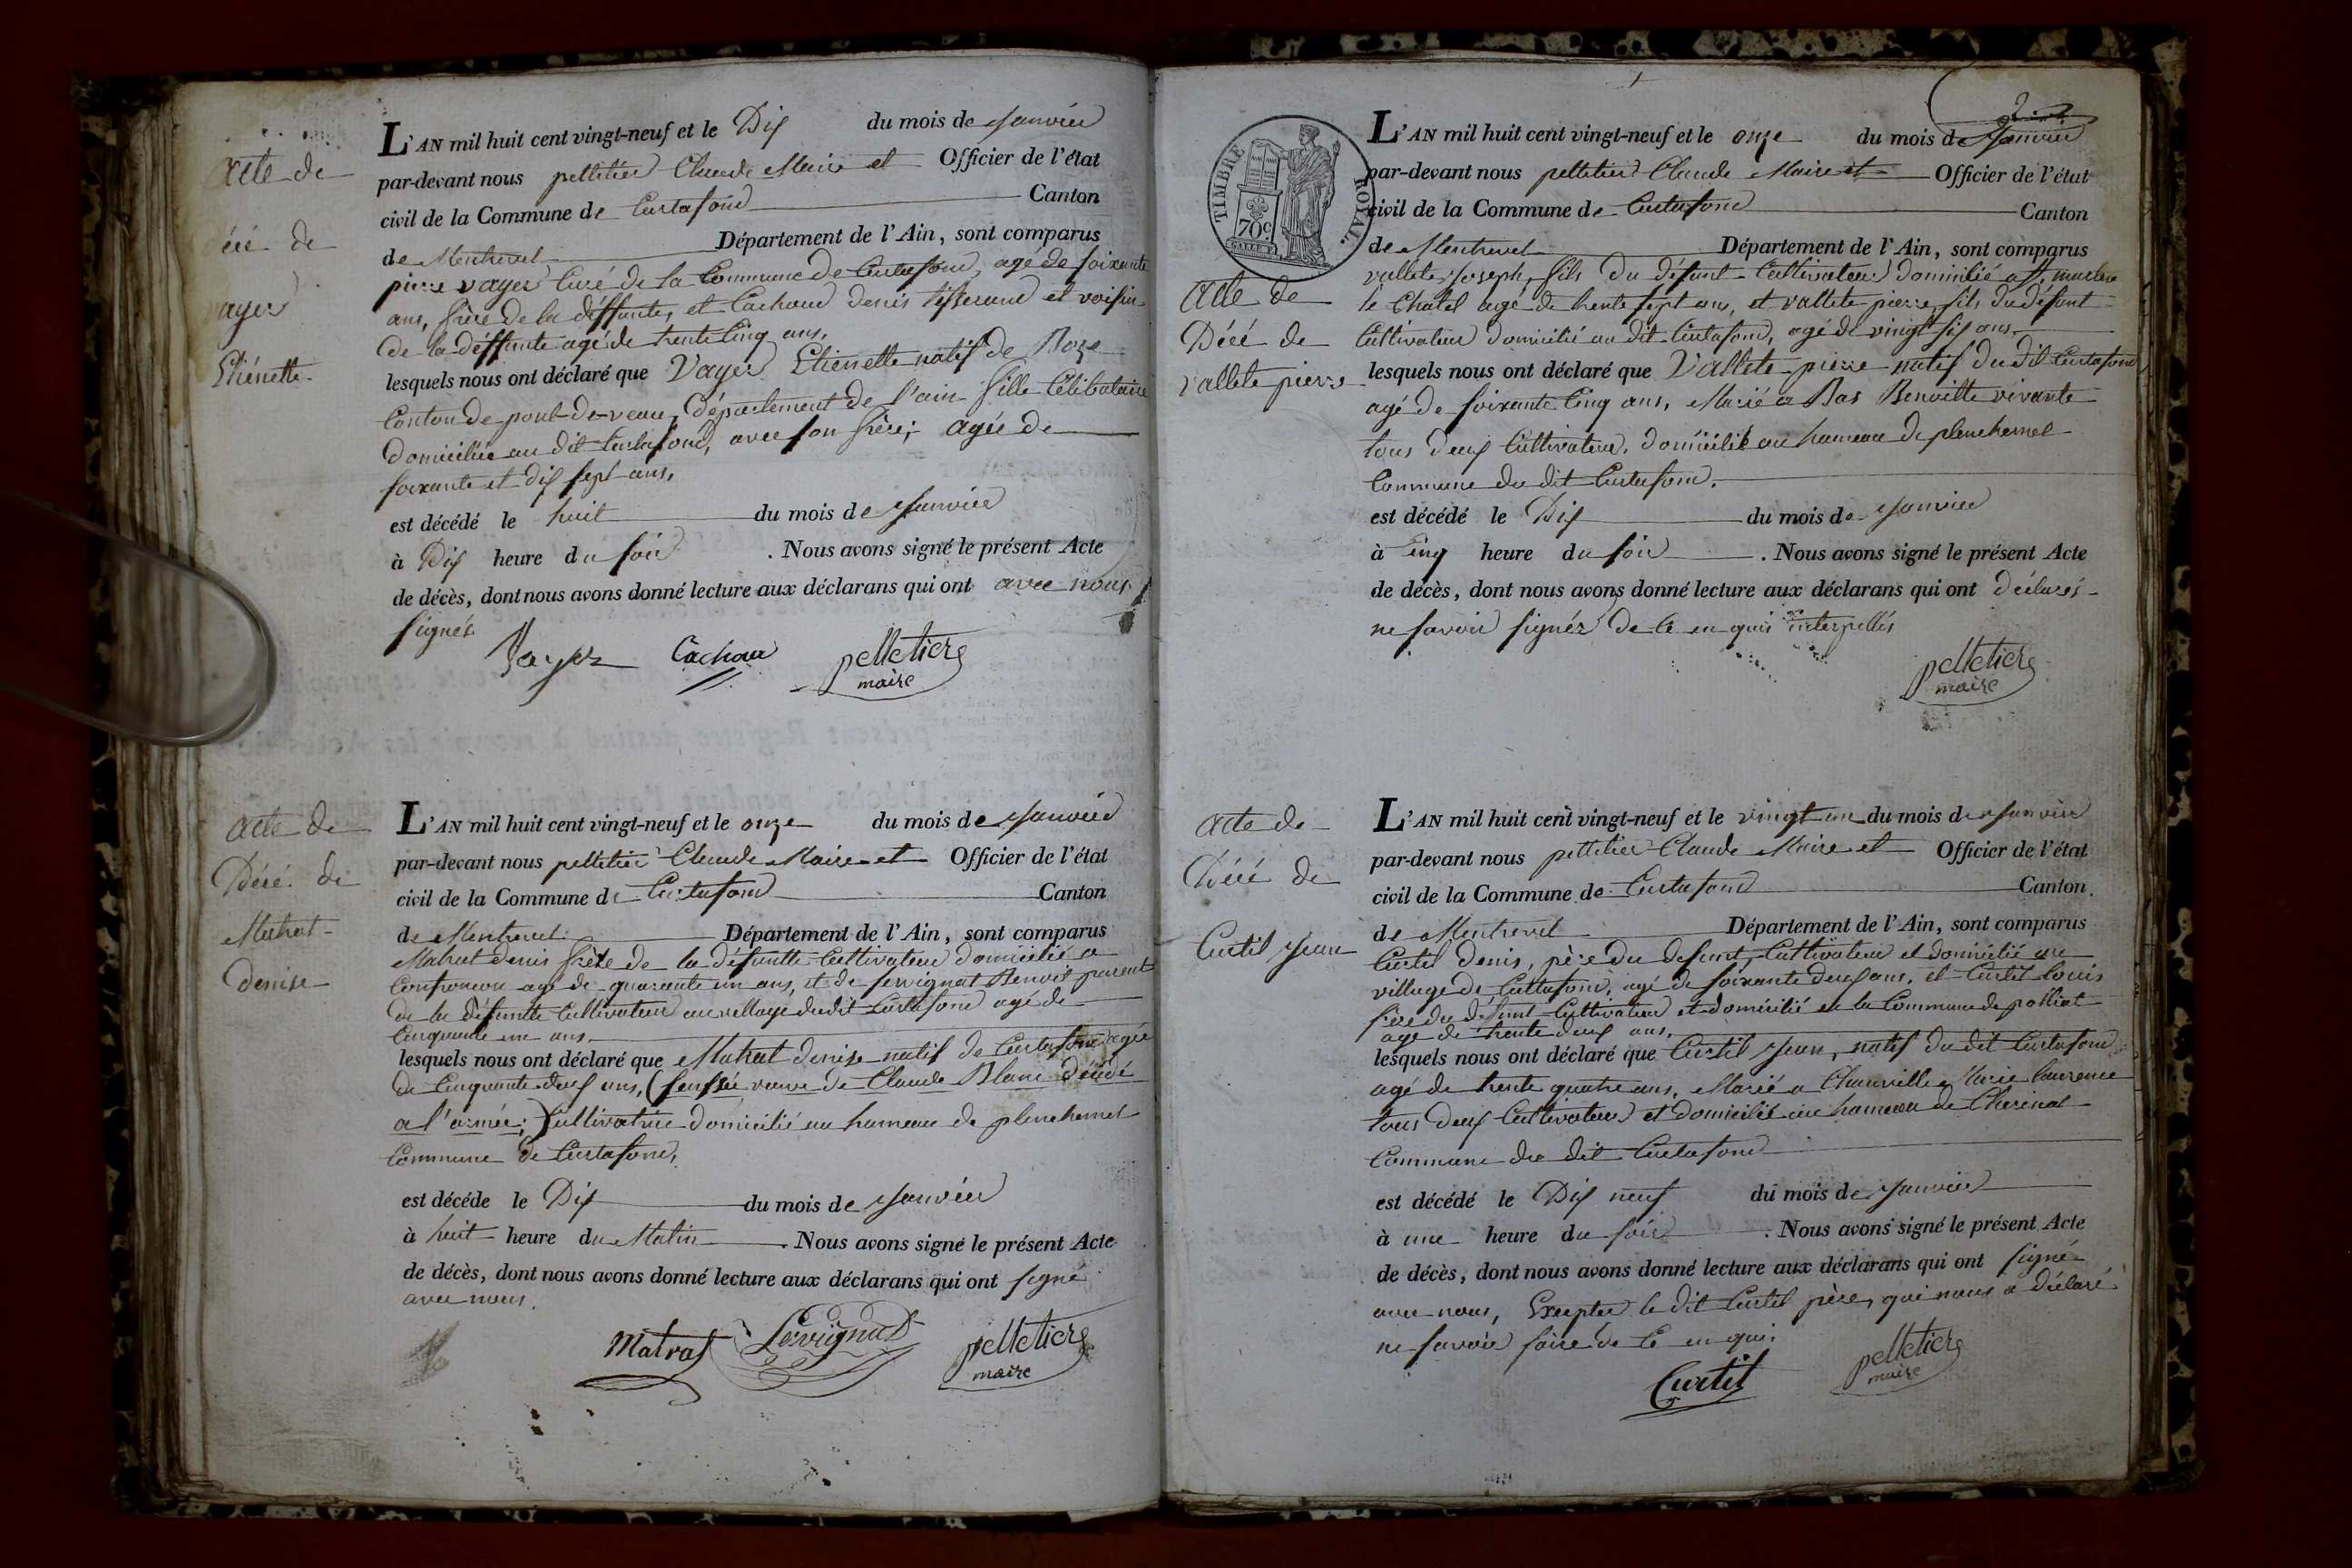 acte de
écé de
ayer
Etiénette
L'AN mil huit cent vingt-neuf et le Dix du mois de Janvier
par-devant nous pelletier Claude Maire et Officier de l'état
civil de la Commune de Curtafond Canton
de Montrevel Département de l'Ain, sont comparus
pierre vayer Curé de la Commune de Curtafond, agé de soixante
ans, frère de la deffunte, et Cachoud denis tisserand et voisin
de la déffunte agé de trente Cinq ans,
lesquels nous ont déclaré que Vayer Etienette natif de Boze
Canton de pont-de-veau, Département de l'ain fille Célibataire
domiciliée au dit Curtafond, avec son frère; agée de
soixante et dix sept ans,
est décédé le huit du mois de Janvier
à Dix heure du soir . Nous avons signé le présent Acte
de décès, dont nous avons donné lecture aux déclarans qui ont avec nous
signés
Vayer Cachou pelletier
maire
acte de
Décé de
Matrat
denise
L'AN mil huit cent vingt-neuf et le onze du mois de Janvier
par-devant nous pelletier Claude Maire et Officier de l'état
civil de la Commune de Curtafond Canton
de Montrevel Département de l'Ain, sont comparus
Matrat denis frère de la défuntte Cultivateur domicilié a
Confrancon agé de quarante un ans, et de servignat Benoit parent
de la défuntte Cultivateur au village dudit Curtafond agé de
Cinquante un ans
lesquels nous ont déclaré que Matrat denise natif de Curtafond agée
de Cinquante deux ans, (sensée veuve de Claude Blanc décédé
a l'armée;) Cultivatrice domicilié au hameau de planchemel
Commune de Curtafond,
est décéde le Dix du mois de Janvier
à huit heure du Matin . Nous avons signé le présent Acte
de décès, dont nous avons donné lecture aux déclarans qui ont signé
avec nous.
Matras Servignat pelletier
maire
TIMBRE ROYAL.
70c
L'AN mil huit cent vingt-neuf et le onze du mois de Janvier
par-devant nous pelletier Claude Maire et Officier de l'état
civil de la Commune de Curtafond Canton
de Montrevel Département de l'Ain, sont comparus
acte de
Décé de
vallete pierre
vallete Joseph, fils du défunt Cultivateur domicilié a St martin
le Chatel agé de trente sept ans, et vallete pierre fils du défunt
Cultivateur domicilié au dit Curtafond, agé de vingt six ans
lesquels nous ont déclaré que Vallete pierre natif du dit Curtafond
agé de soixante Cinq ans, Marié a Bas Benoitte vivante
tous deux Cultivateur, domicilié au hameau de planchemel
Commune du dit Curtafond.
est décédé le Dix du mois de Janvier
à Cinq heure du soir . Nous avons signé le présent Acte
de décès, dont nous avons donné lecture aux déclarans qui ont déclarés
ne savoir signés de ce en quis interpellés
pelletier
maire
acte de
Décé de
Curtil Jean
L'AN mil huit cent vingt-neuf et le vingt un du mois de Janvier
par-devant nous pelletier Claude Maire et Officier de l'état
civil de la Commune de Curtafond Canton
de Montrevel Département de l'Ain, sont comparus
Curtil Denis, père du defunt, Cultivateur et domicilié au
village de Curtafond, agé de soixante deux ans, et Curtil Louis
frère du défunt Cultivateur et domicilié en la Commune de polliat
agé de trente deux ans,
lesquels nous ont déclaré que Curtil Jean, natif du dit Curtafond
agé de trente quatre ans, Marié a Chanville Marie laurence
tous deux Cultivateur et domicilié au hameau de Cherinal
Commune du dit Curtafond
est décédé le Dix neuf du mois de Janvier
à une heure du soir . Nous avons signé le présent Acte
de décès, dont nous avons donné lecture aux déclarans qui ont signé
avec nous, Excepter le dit Curtil père, qui nous a déclaré
ne savoir faire de ce en quis
Curtil pelletier
maire